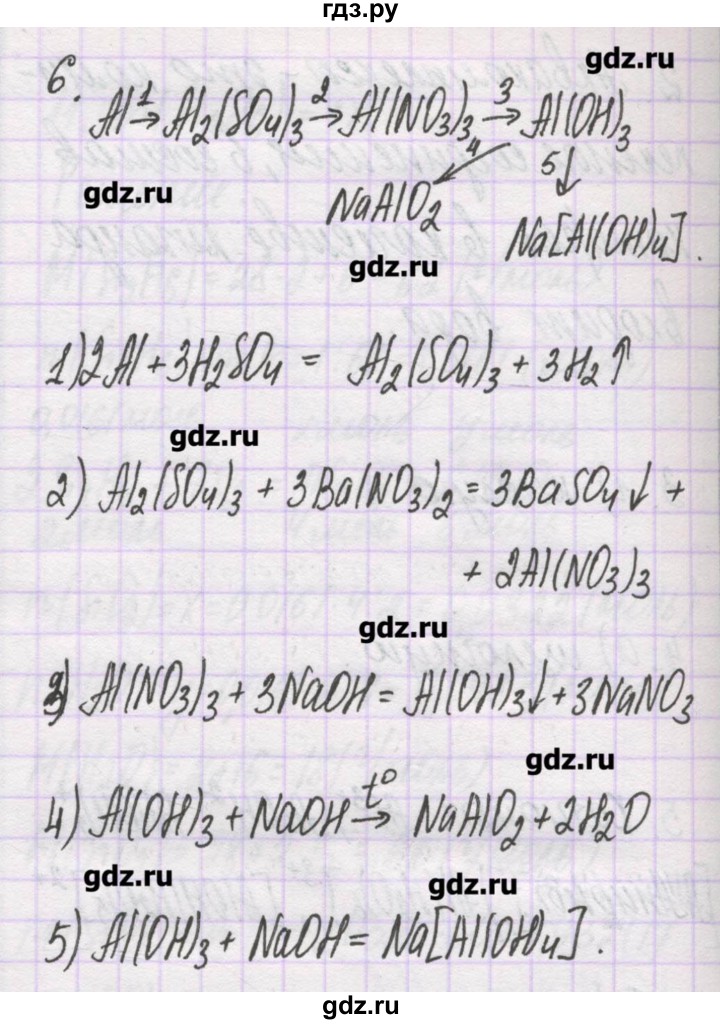 гдз.ру
gdz.ru
6.
Al →¹ Al₂(SO₄)₃ →² Al(NO₃)₃ →³ Al(OH)₃
4 5↓
gdz.ru
NaAlO₂
Na[Al(OH)₄].
gdz.ru
1) 2Al + 3H₂SO₄ = Al₂(SO₄)₃ + 3H₂↑
gdz.ru
2) Al₂(SO₄)₃ + 3Ba(NO₃)₂ = 3BaSO₄↓ +
+ 2Al(NO₃)₃
gdz.ru
3) Al(NO₃)₃ + 3NaOH = Al(OH)₃↓ + 3NaNO₃
gdz.ru
4) Al(OH)₃ + NaOH →t° NaAlO₂ + 2H₂O
gdz.ru
gdz.ru
5) Al(OH)₃ + NaOH = Na[Al(OH)₄].
gdz.ru